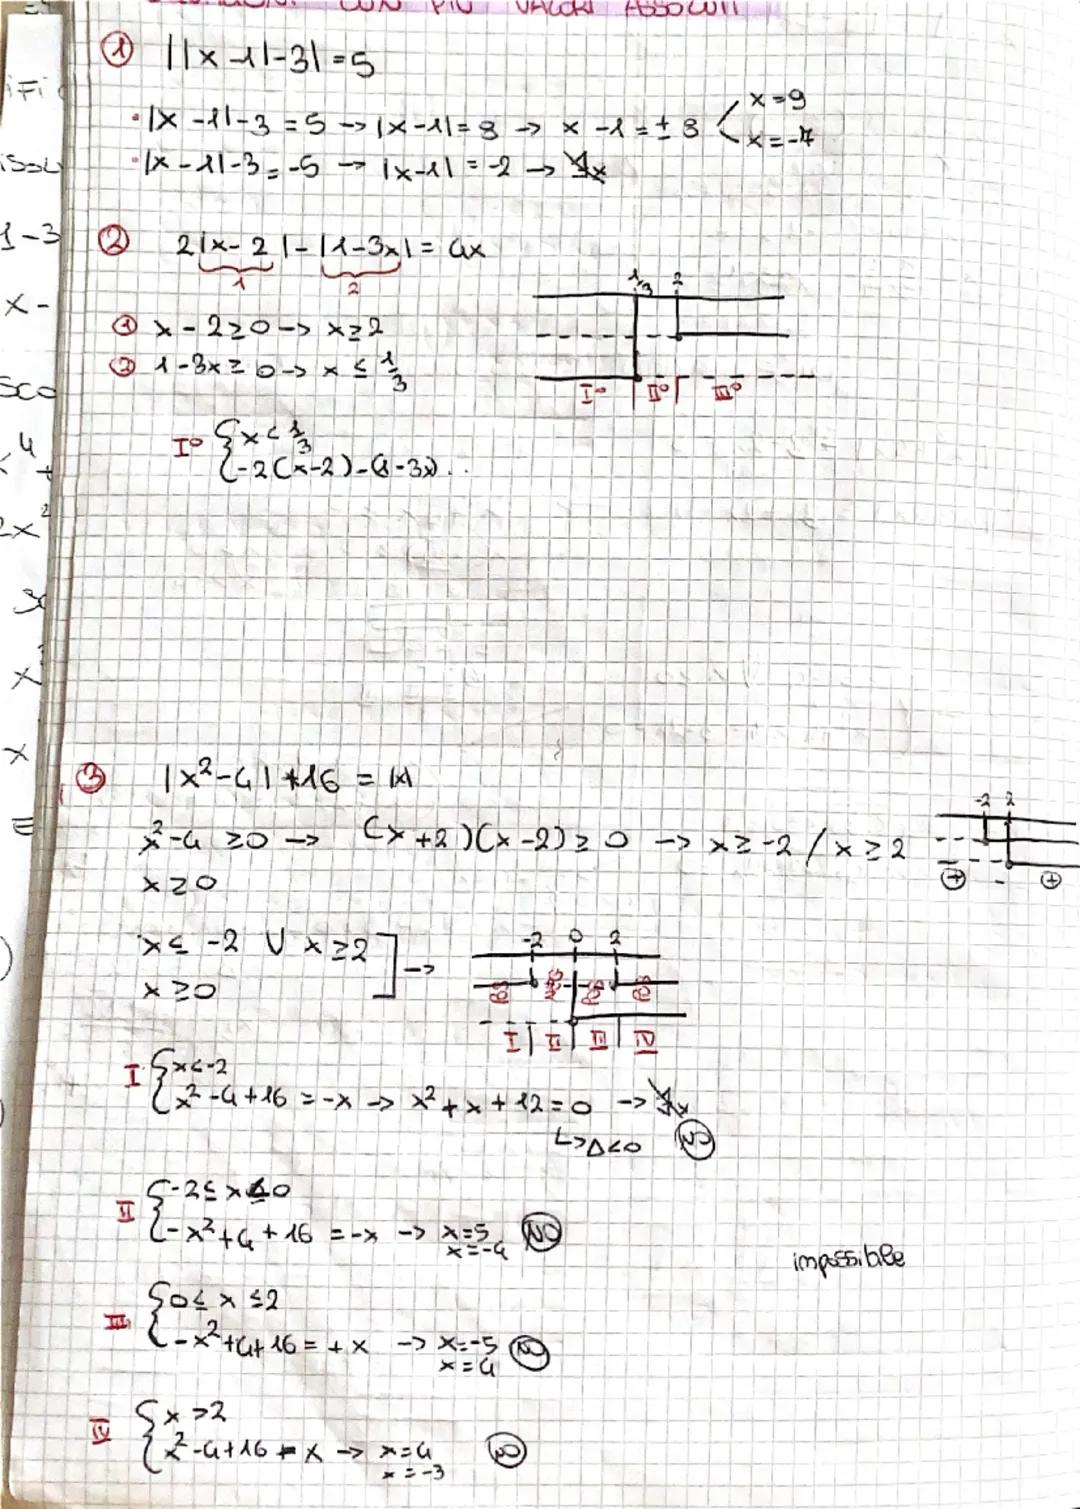 CON PIÙ VALORI ASSOLUTI
① ||x-1|-3|=5
• |x-1|-3=5 -> |x-1|=8 -> x-1=±8 < x=9
x=-7
• |x-1|-3=-5 -> |x-1|=-2 -> ∄x
② 2|x-2|-|1-3x|=4x
1 2
① x-2≥0 -> x≥2
② 1-3x≥0 -> x≤1/3
1/3 2
I° | II° | III°
I° { x<1/3
-2(x-2)-(1-3x)..
③ |x²-4|+16=|x|
x²-4≥0 -> (x+2)(x-2)≥0 -> x≥-2 / x≥2
x≥0
-2 2
+ - +
x≤-2 ∨ x≥2 ] ->
x≥0
-2 0 2
I | II | III | IV
I { x<-2
x²-4+16=-x -> x²+x+12=0 -> ∄x
↳ Δ<0 NO
II { -2≤x≤0
-x²+4+16=-x -> x=5 NO
x=-4
impossibile
III { 0≤x≤2
-x²+4+16=+x -> x=-5 NO
x=4
IV { x>2
x²-4+16=x -> x=4 NO
x=-3